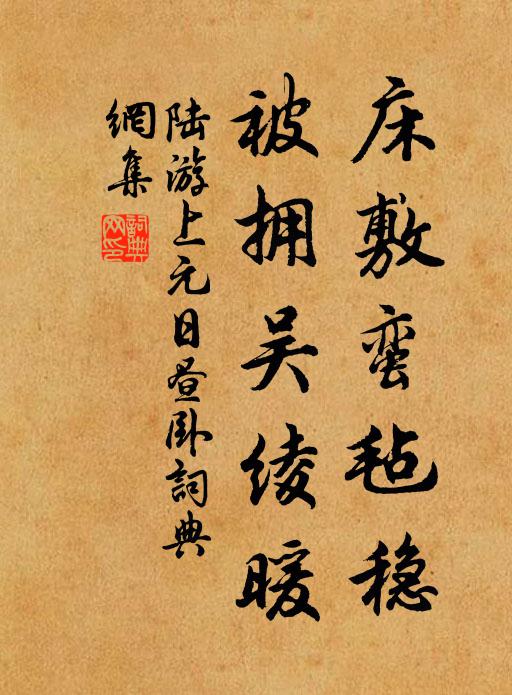 床敷蛮毡稳
被拥吴绫暖
陆游上元日昼卧詞典
網集
詞典
网印